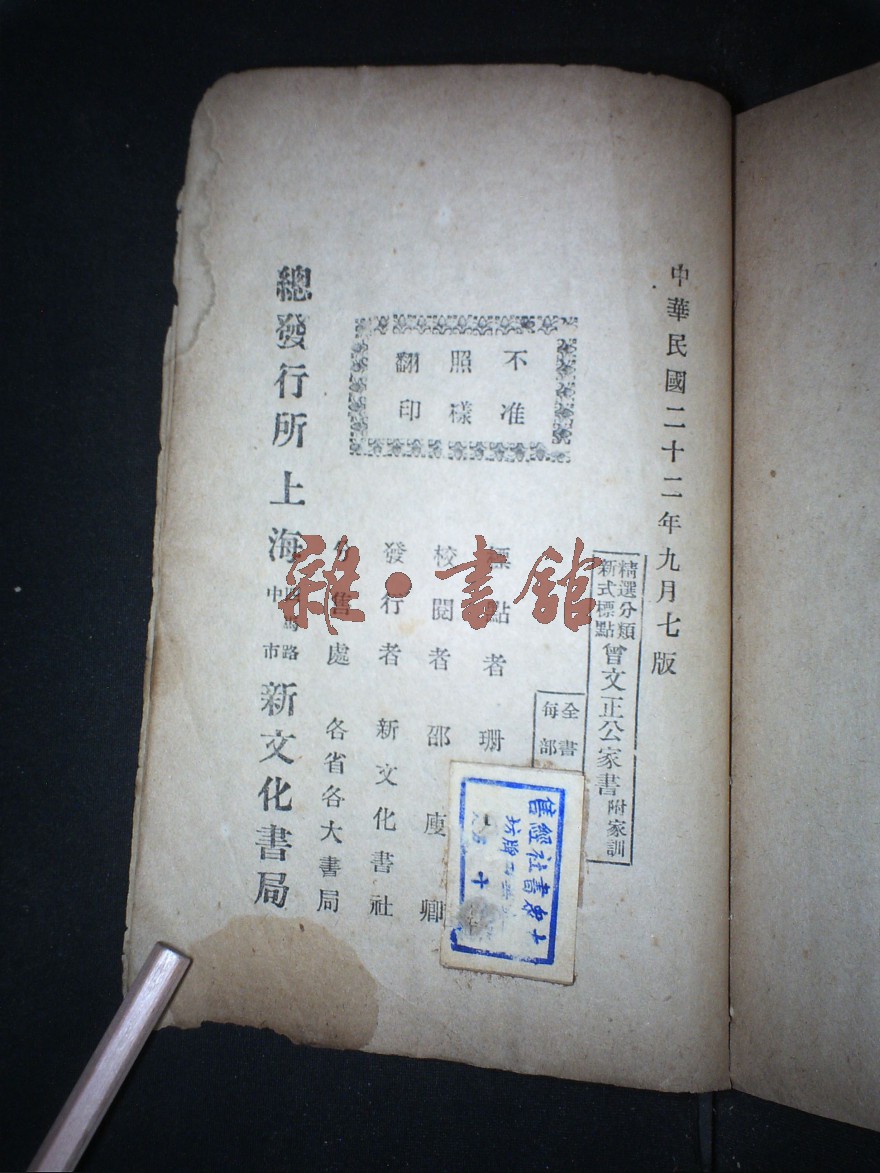 中華民國二十二年九月七版
精選分類
新式標點
曾文正公家書
附家訓
全書
每部
不准
照樣
翻印
標點者 珊
校閱者 邵廋卿
發行者 新文化書社
分售處 各省各大書局
總發行所上海
四馬路
中市
新文化書局
書社經售
牌坊
雜·書館